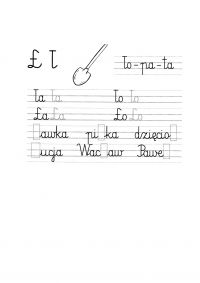 Ł ł
ło-pa-ta
ła ła ło ło
Ła Ła Ło Ło
□awka pi□ka dzięcio□
□ucja Wac□aw Pawe□